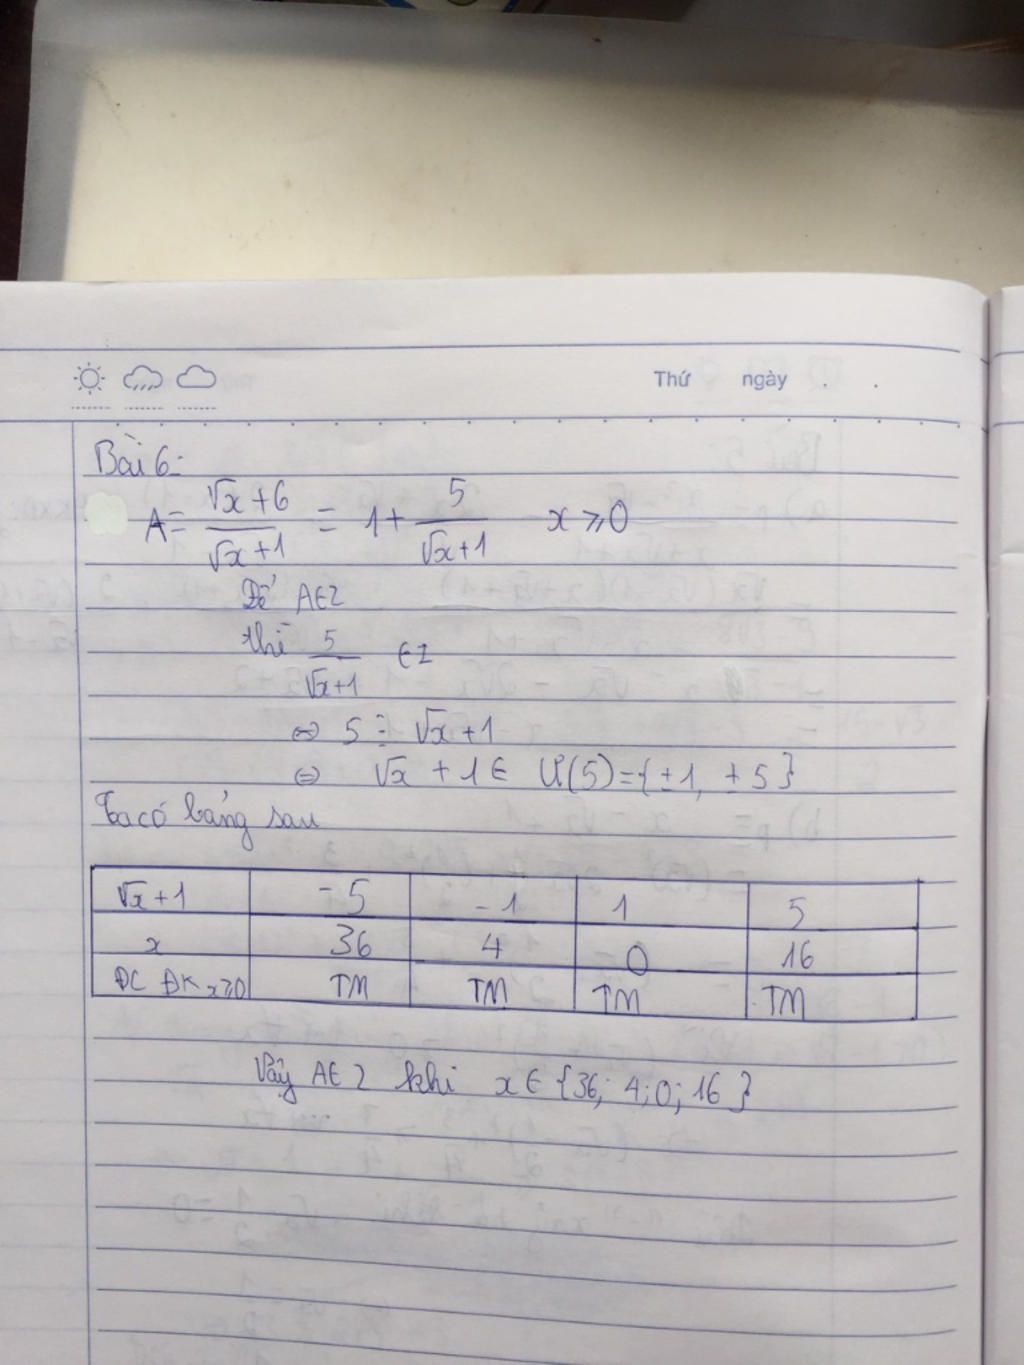 Thứ ngày . .
Bài 6:
A = (√x + 6)/(√x + 1) = 1 + 5/(√x + 1) x ≥ 0
Để A ∈ Z
thì 5/(√x + 1) ∈ Z
⇔ 5 ⋮ √x + 1
⇔ √x + 1 ∈ Ư(5) = {±1, ±5}
Ta có bảng sau
√x + 1 -5 -1 1 5
x 36 4 0 16
ĐC ĐK x≥0 TM TM TM TM
Vậy A ∈ Z khi x ∈ {36; 4; 0; 16}